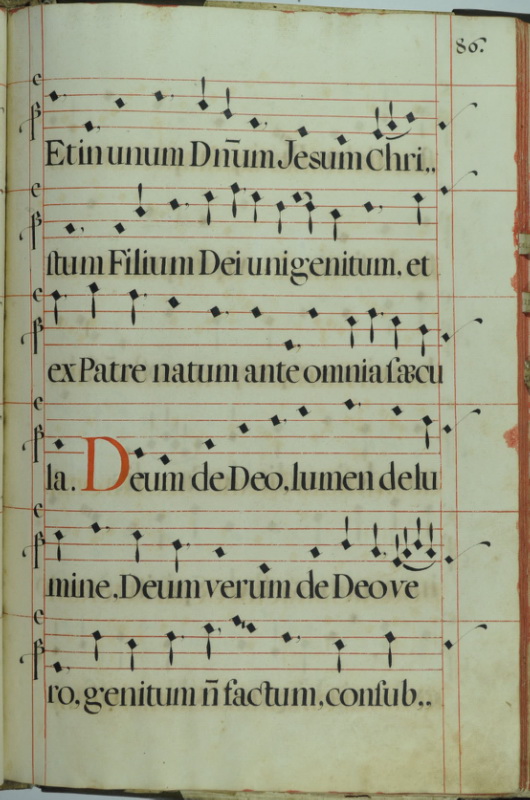 86.
Et in unum Dñum Jesum Chri,,
ſtum Filium Dei unigenitum. et
ex Patre natum ante omnia ſæcu
la. Deum de Deo, lumen de lu
mine, Deum verum de Deo ve
ro, genitum ñ factum, conſub,,